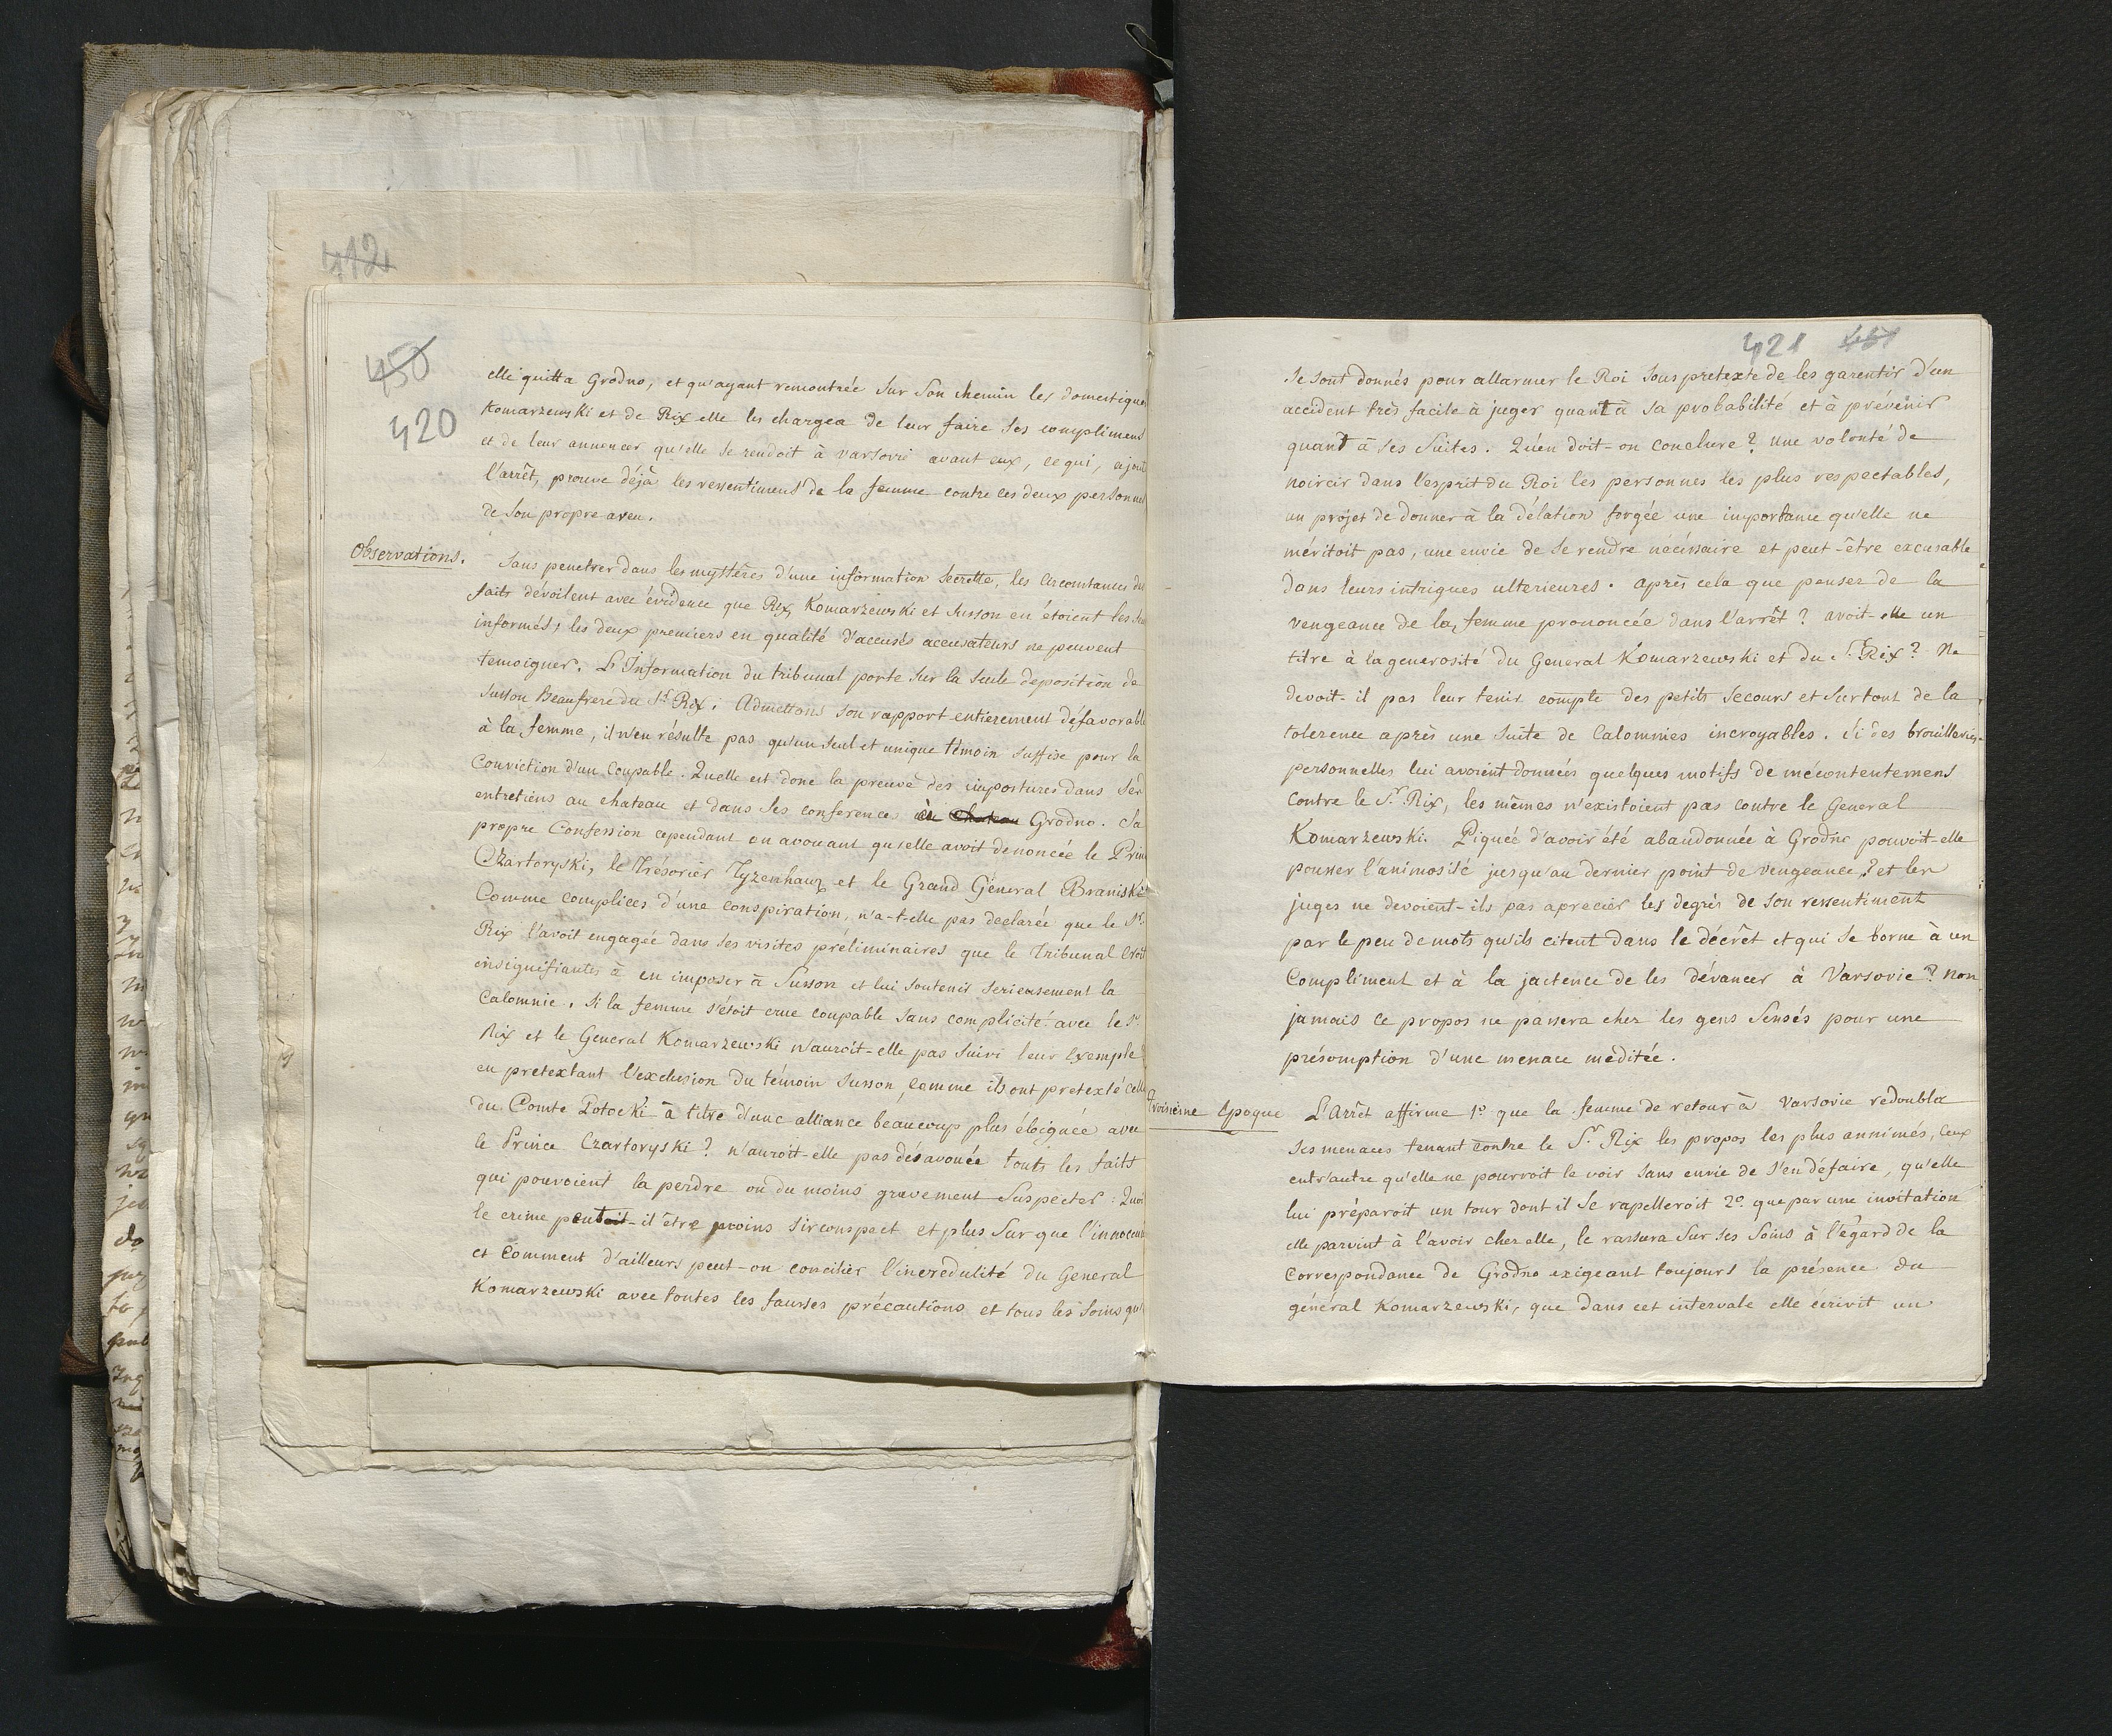 412
450
420
elle quitta Grodno, et qu'ayant remontrée sur son chemin les domestiques
Komarzewski et de Rix elle les chargea de leur faire ses compliments
et de leur annoncer qu'elle se rendoit à varsovie avant eux, ce qui, ajoute
l'arrêt, prouve déjà les ressentiments de la femme contre ces deux personnes
de son propre aveu.
Observations.
Sans penetrer dans les mystères d'une information secrette, les circonstances des
faits dévoilent avec évidence que Rix, Komarzewski et Susson en étoient les
informés; les deux premiers en qualité d'accusés accusateurs ne peuvent
temoigner. L'Information du tribunal porte sur la seule deposition de
Susson Beaufrere du Sr. Rix; Admettons son rapport entierement défavorable
à la femme, il n'en résulte pas qu'un seul et unique témoin suffise pour la
Conviction d'un Coupable. Quelle est donc la preuve des impostures dans ses
entretiens au chateau et dans ses conference à Grodno. Sa
propre Confession cependant en avouant qu'elle avoit denoncée le Prince
Czartoryski, le Trésorier Tyzenhauz et le Grand Général Braniski
Comme complices d'une conspiration, n'a-t-elle pas declarée que le Sr.
Rix l'avoit engagée dans ses visites préliminaires que le Tribunal croit
insignifiantes à en imposer à Susson et lui soutenir serieusement la
Calomnie. Si la femme s'étoit crue coupable sans complicité avec le Sr.
Rix et le General Komarzewski n'auroit-elle pas suivi leur exemple
en pretextant l'exclusion du témoin Susson, comme ils ont pretexté celle
du Comte Potocki à titre d'une alliance beaucoup plus éloignée avec
le Prince Czartoryski? n'auroit-elle pas désavouée touts les faits
qui pouvoient la perdre ou du moins gravement suspecter: Quoi
le crime peut-il être moins sirconspect et plus sur que l'innocence
et Comment d'ailleurs peut-on concilier l'incredulité du General
Komarzewski avec toutes les fausses précautions et tous les soins qu'
421 451
se sont donnés pour allarmer le Roi sous pretexte de les garentir d'un
accident très facile à juger quant à sa probabilité et à prévenir
quant à ses suites. Qu'en doit-on conclure? une volonté de
noircir dans l'esprit du Roi les personnes les plus respectables,
un projet de donner à la délation forgée une importance qu'elle ne
méritoit pas, une envie de se rendre nécéssaire et peut-être excusable
dans leurs intrigues ulterieures. après cela que penser de la
vengeance de la femme prononcée dans l'arrêt? avoit-elle un
titre à la generosité du General Komarzewski et du Sr. Rix? Ne
devoit-il pas leur tenir compte des petits secours et surtout de la
tolerence après une suite de Calomnies incroyables. Si des brouilleries
personnelles lui avoient donnés quelques motifs de mécontentemens
contre le Sr. Rix, les mêmes n'existoient pas contre le General
Komarzewski. Piquée d'avoir été abandonnée à Grodno pouvoit-elle
pousser l'animosité jusqu'au dernier point de vengeance? et les
juges ne devoient-ils pas aprecier les degrés de son ressentiment
par le peu de mots qu'ils citent dans le décrêt et qui se borne à un
Compliment et à la jactence de les dévancer à Varsovie? non
jamais ce propos ne passera chez les gens sensés pour une
présomption d'une menace méditée.
Troisieme Epoque
L'Arrêt affirme 1º que la femme de retour à Varsovie redoubla
ses menaces tenant contre le Sr. Rix les propos les plus annimés, ceux
entr'autre qu'elle ne pourroit le voir sans envie de s'en défaire, qu'elle
lui préparoit un tour dont il se rapelleroit 2º que par une invitation
elle parvint à l'avoir chez elle, le rassura sur ses soins à l'égard de la
Correspondance de Grodno exigeant toujours la présence du
général Komarzewski, que dans cet intervale elle écrivit un